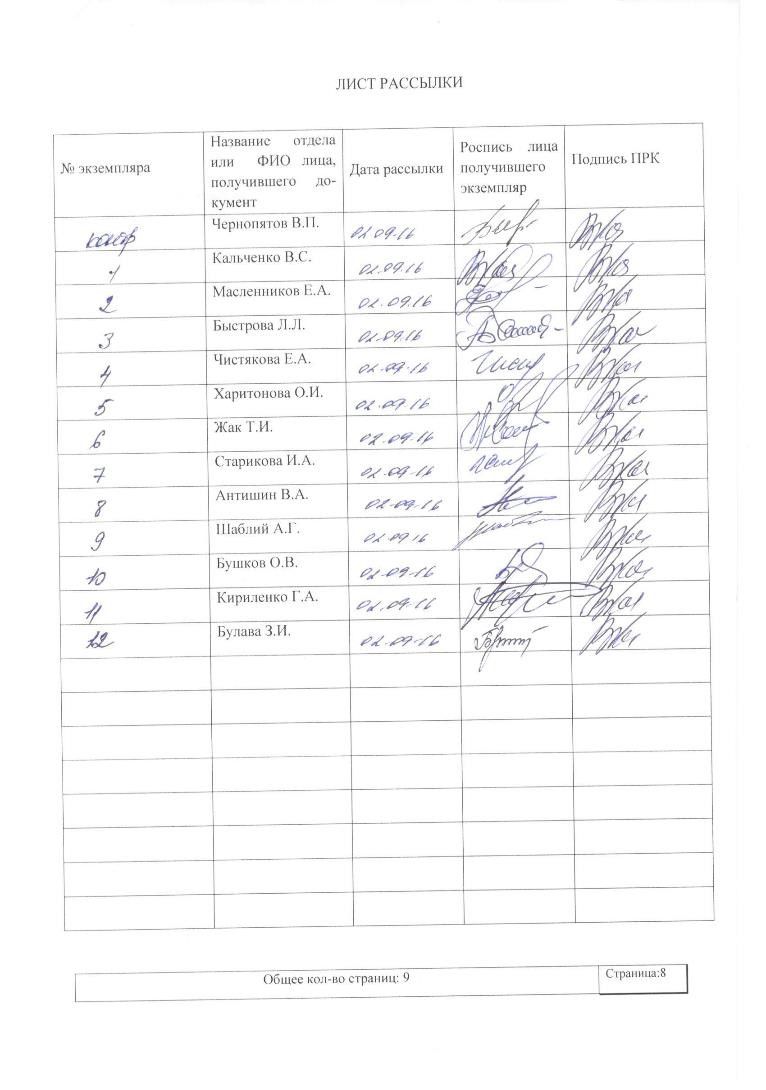 ЛИСТ РАССЫЛКИ
№ экземпляра
Название отдела
или ФИО лица,
получившего до-
кумент
Дата рассылки
Роспись лица
получившего
экземпляр
Подпись ПРК
Чернопятов В.П. 02.09.16
1 Кальченко В.С. 02.09.16
2 Масленников Е.А. 02.09.16
3 Быстрова Л.Л. 02.09.16
4 Чистякова Е.А. 02.09.16
5 Харитонова О.И. 02.09.16
6 Жак Т.И. 02.09.16
7 Старикова И.А. 02.09.16
8 Антишин В.А. 02.09.16
9 Шаблий А.Г. 02.09.16
10 Бушков О.В. 02.09.16
11 Кириленко Г.А. 02.09.16
12 Булава З.И. 02.09.16
Общее кол-во страниц: 9
Страница:8